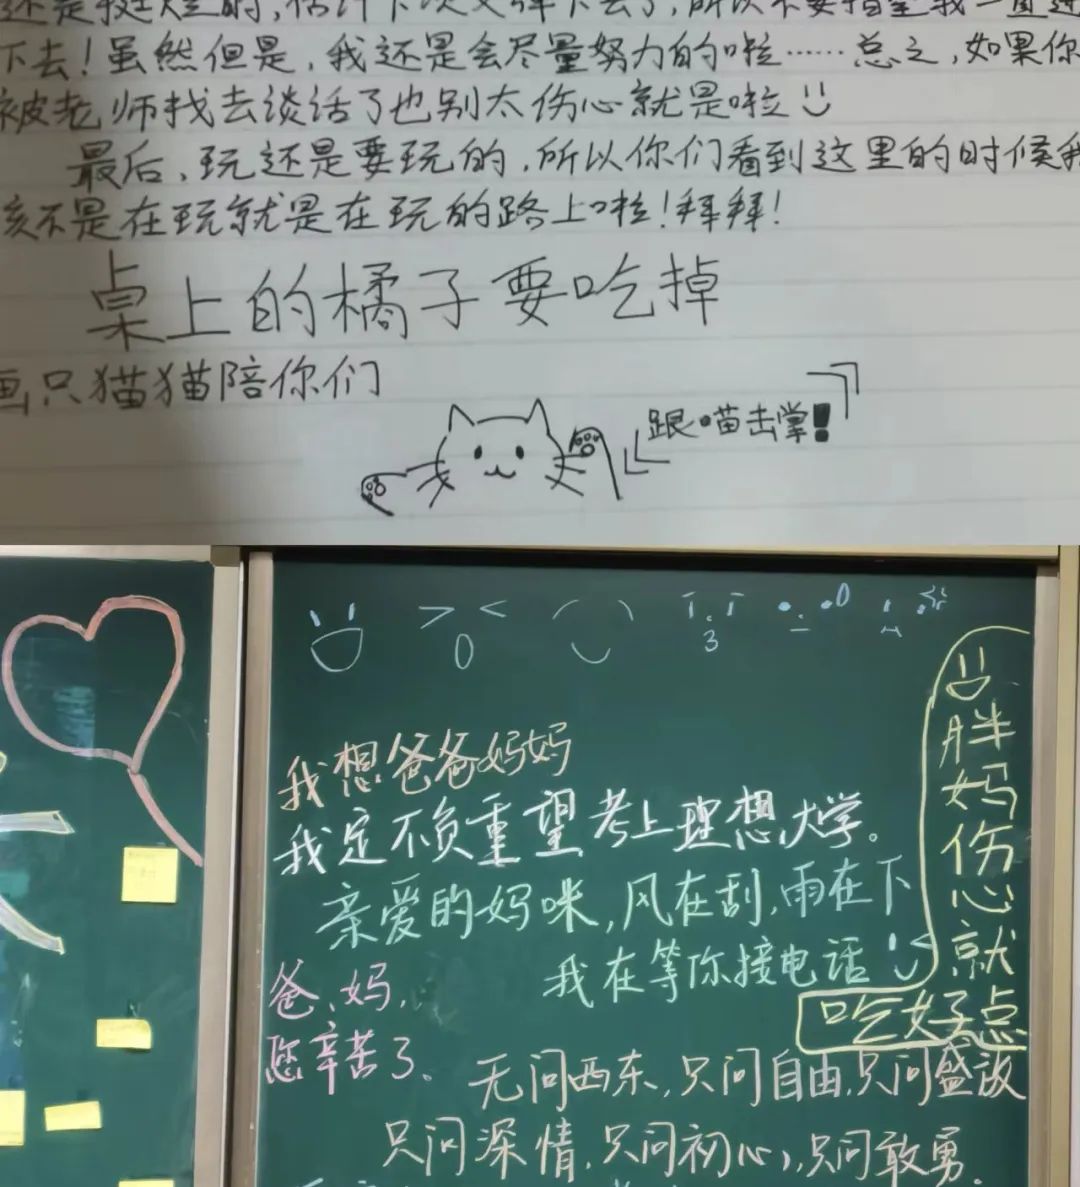 还是挺烂的，估计下次又弹下去了，所以不要指望我一直进
下去！虽然但是，我还是会尽量努力的啦……总之，如果你
被老师找去谈话了也别太伤心就是啦
最后，玩还是要玩的，所以你们看到这里的时候我
该不是在玩就是在玩的路上啦！拜拜！
桌上的橘子要吃掉
画只猫猫陪你们
跟喵击掌！
我想爸爸妈妈
我定不负重望考上理想大学。
亲爱的妈咪，风在刮，雨在下
我在等你接电话
爸、妈，
您辛苦了、
胖妈伤心就
吃好点
无问西东，只问自由，只问盛放
只问深情，只问初心，只问敢勇。